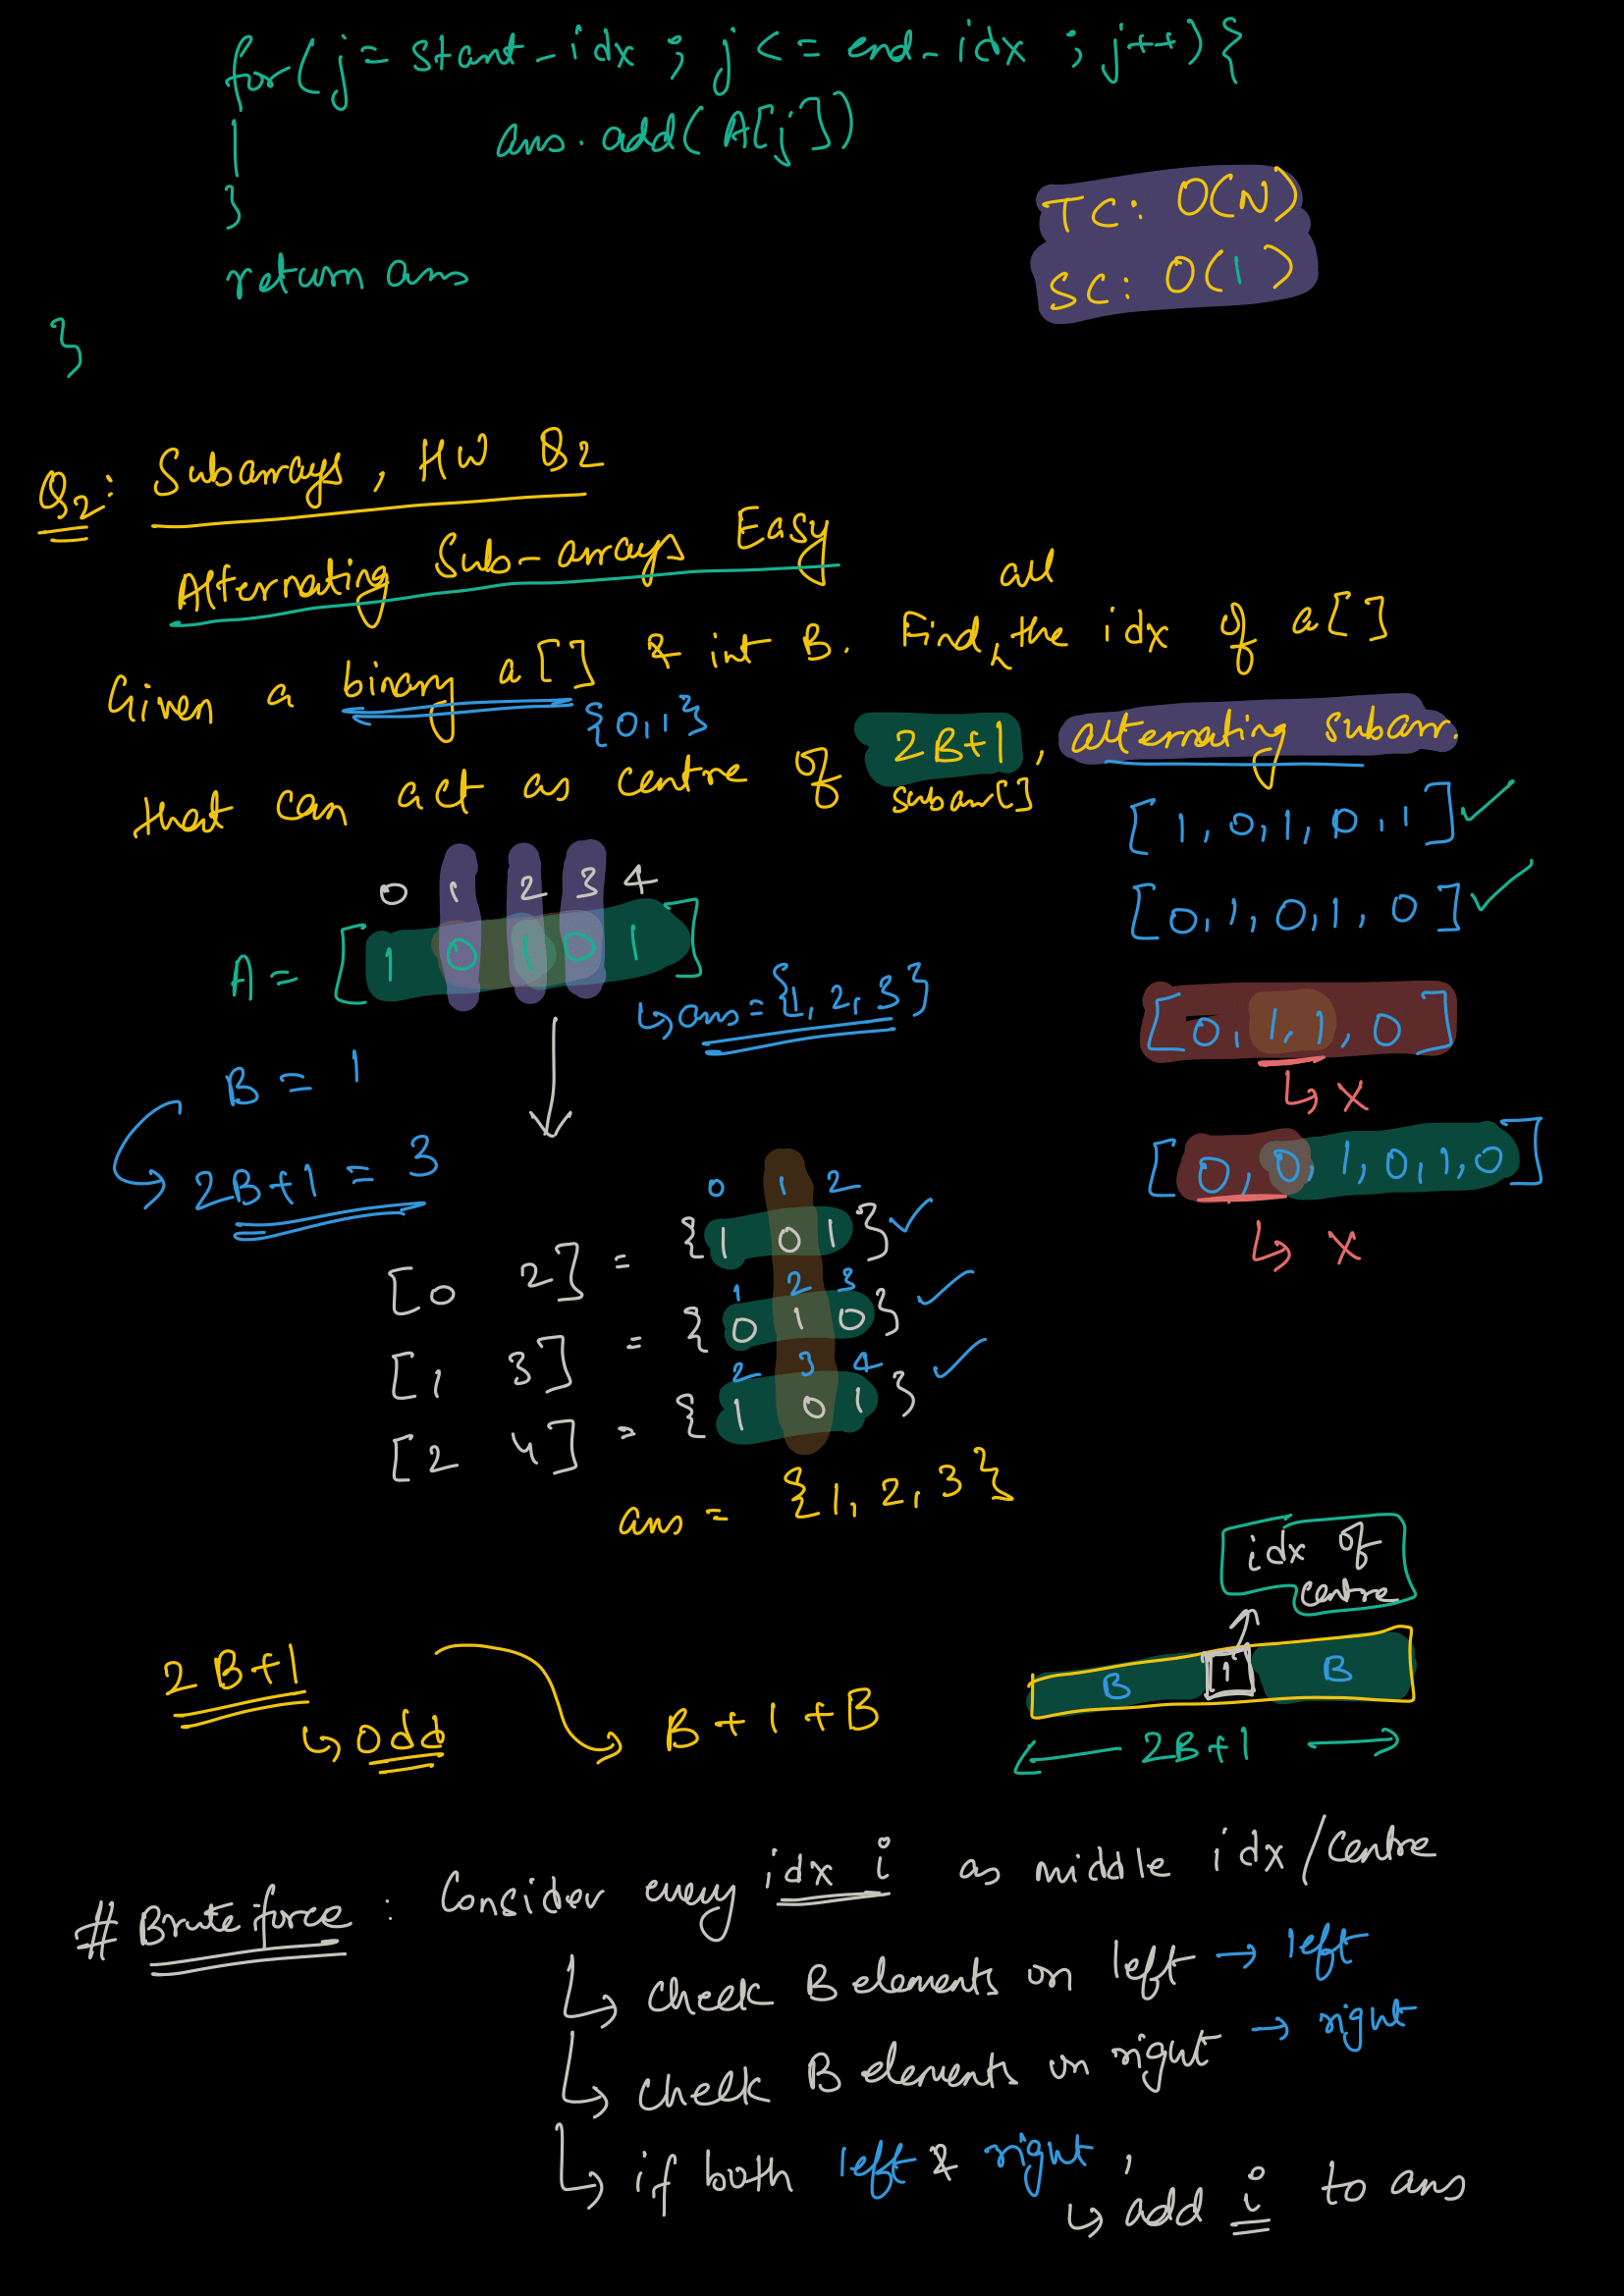 for(j = start_idx ; j <= end_idx ; j++){
ans.add(A[j])
}
return ans
}
TC: O(N)
SC: O(1)
Q2: Subarrays, HW Q2
Alternating Sub-arrays Easy
Given a binary a[] & int B. Find all the idx of a[]
{0,1}
that can act as centre of 2B+1, alternating subarr.
subarr[]
[1,0,1,0,1] ✓
[0,1,0,1,0] ✓
0 1 2 3 4
A = [1 0 1 0 1]
↳ ans = {1, 2, 3}
[0, 1, 1, 0]
↳ X
B = 1
2B+1 = 3
[0, 0, 1, 0, 1, 0]
↳ X
0 1 2
[0 2] = {1 0 1} ✓
1 2 3
[1 3] = {0 1 0} ✓
2 3 4
[2 4] = {1 0 1} ✓
ans = {1, 2, 3}
idx of
centre
2B+1
↳ odd
B+1+B
B 1 B
← 2B+1 →
# Brute force : Consider every idx i as middle idx/centre
↳ check B elements on left → left
↳ check B elements on right → right
↳ if both left & right,
↳ add i to ans